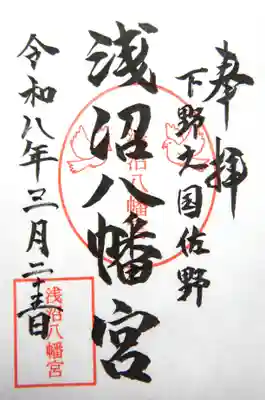 奉拝
下野之国佐野
浅沼八幡宮
浅沼八幡
令和八年三月二十五日
浅沼八幡宮